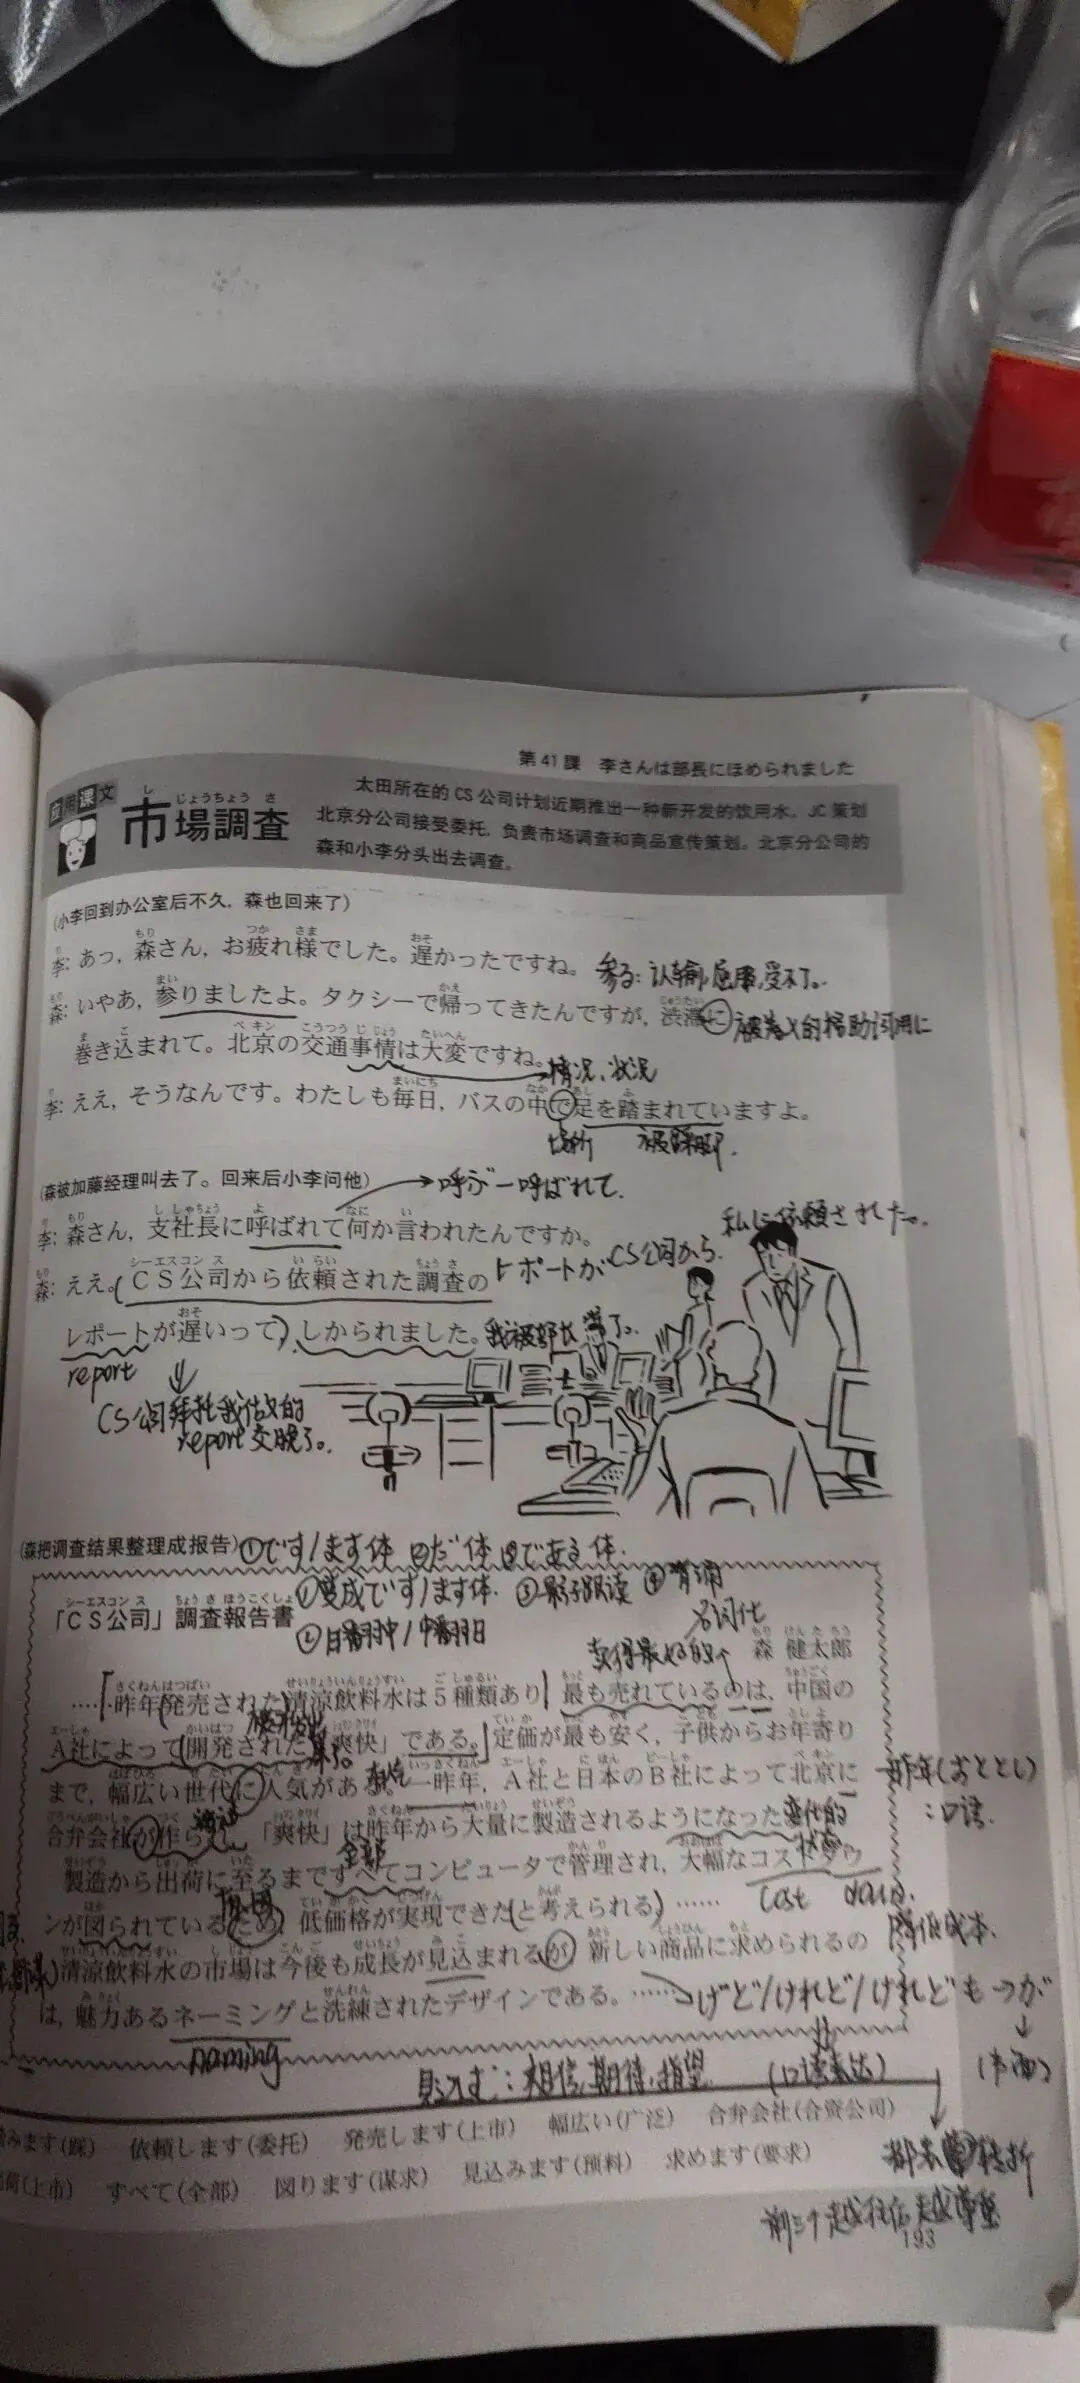 第41課 李さんは部長にほめられました
应用课文
市場調査
しじょうちょうさ
太田所在的CS公司计划近期推出一种新开发的饮用水。JC策划
北京分公司接受委托，负责市场调查和商品宣传策划。北京分公司的
森和小李分头出去调查。
(小李回到办公室后不久，森也回来了)
李: あっ，森さん，お疲れ様でした。遅かったですね。
参る: 认输,屈服,受不了。
森: いやあ，参りましたよ。タクシーで帰ってきたんですが，渋滞に
被卷入的 助词用に
巻き込まれて。北京の交通事情は大変ですね。
情况、状况
李: ええ，そうなんです。わたしも毎日，バスの中で足を踏まれていますよ。
场所 被踩脚.
(森被加藤经理叫去了。回来后小李问他)
呼ぶ一呼ばれて.
李: 森さん，支社長に呼ばれて何か言われたんですか。
私に依頼された
森: ええ。CS公司から依頼された調査の
レポートがCS公司から
レポートが遅いって，しかられました。
我被部长骂了。
report
CS公司拜托我做的
report交晚了。
(森把调查结果整理成报告)
①です/ます体 ②だ体 ③である体.
①变成です/ます体. ③影子跟读 ④背诵
「CS公司」調査報告書
②日翻中/中翻日
名词化
卖得最好的
森 健太郎
……昨年発売された清涼飲料水は5種類あり，最も売れているのは，中国の
A社によって開発された「爽快」である。定価が最も安く，子供からお年寄り
まで，幅広い世代に人気がある。一昨年，A社と日本のB社によって北京に
一昨年(おととい)
:口语.
合弁会社が作られ，「爽快」は昨年から大量に製造されるようになった。
变化的
状态
全部
製造から出荷に至るまですべてコンピュータで管理され，大幅なコストダウ
cost down.
ンが図られているため，低価格が実現できたと考えられる。……
降低成本.
清涼飲料水の市場は今後も成長が見込まれるが，新しい商品に求められるの
は，魅力あるネーミングと洗練されたデザインである。……
けど/けれど/けれども→が
naming
見込む: 相信,期待,指望
(口语表达)
(书面)
踏みます(踩) 依頼します(委托) 発売します(上市) 幅広い(广泛) 合弁会社(合资公司)
出荷(上市) すべて(全部) 図ります(谋求) 見込みます(预料) 求めます(要求)
都表 转折
前三个越往后越
193